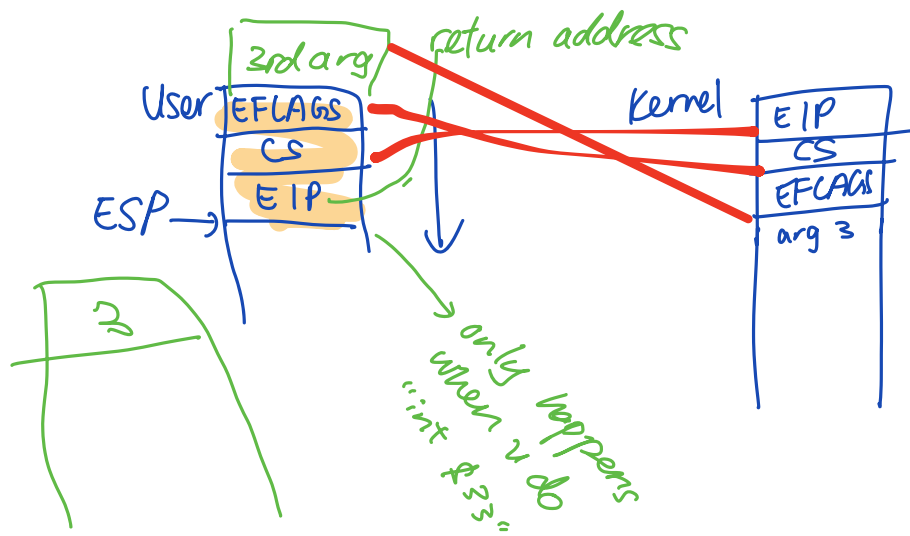 3rd arg
return address
User
EFLAGS
CS
EIP
ESP
Kernel
EIP
CS
EFLAGS
arg 3
3
only happens
when u do
"int $33"